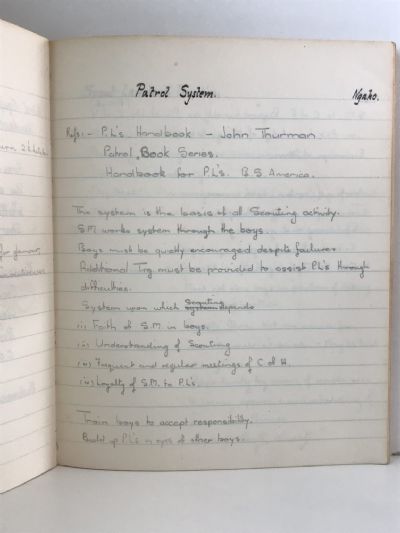 Patrol System.
Ngaio.
Refs:- P.L's Handbook - John Thurman
Patrol Book Series.
Handbook for P.L's. B.S. America.
This system is the basis of all Scouting activity.
S.M. works system through the boys.
Boys must be quietly encouraged despite failures
Additional Trg must be provided to assist P.L's through
difficulties.
System upon which Scouting depends
(i) Faith of S.M. in boys.
(ii) Understanding of Scouting
(iii) Frequent and regular meetings of C of H.
(iv) Loyalty of S.M. to P.L's.
Train boys to accept responsibility.
Build up P.L's in eyes of other boys.